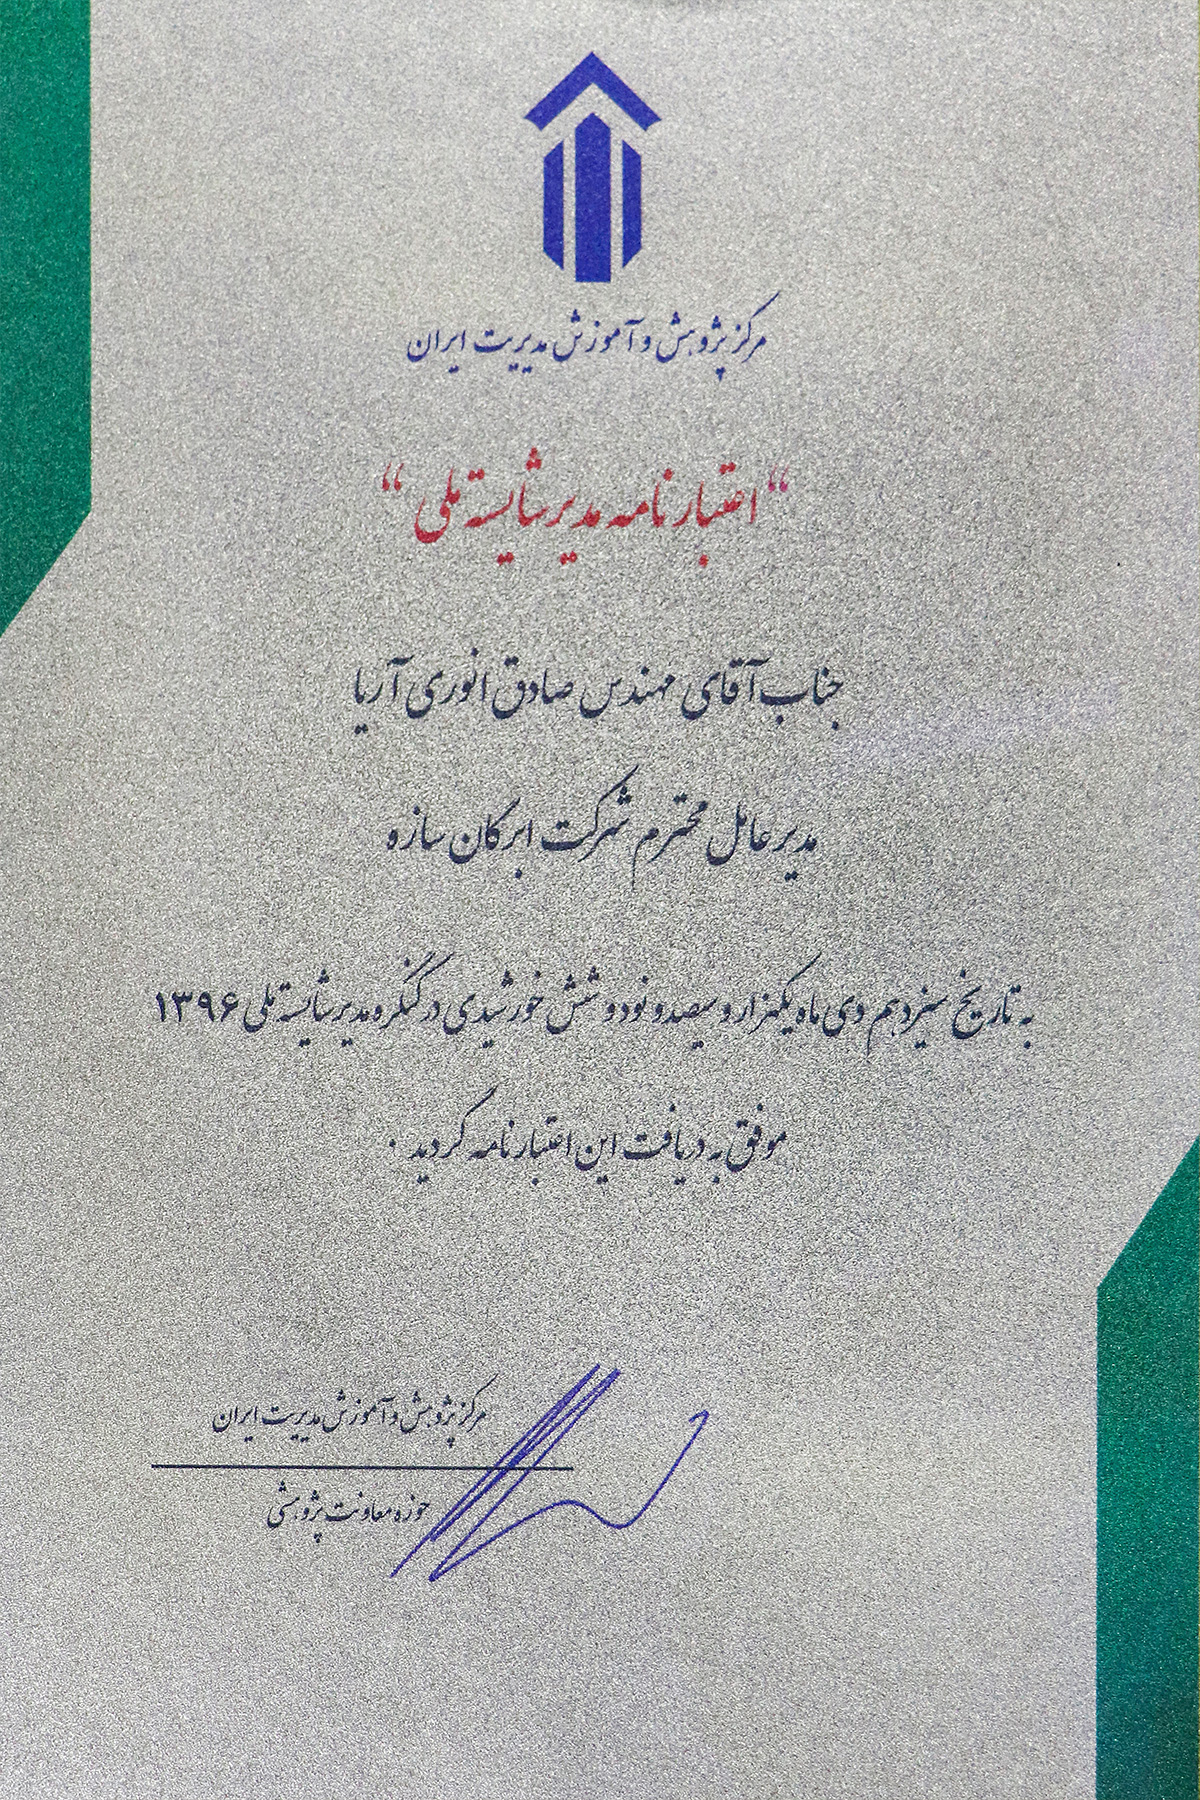 مرکز پژوهش و آموزش مدیریت ایران
“اعتبارنامه مدیر شایسته ملی“
جناب آقای مهندس صادق انوری آریا
مدیر عامل محترم شرکت ابرکان سازه
به تاریخ سیزدهم دی ماه یکهزار و سیصد و نود و شش خورشیدی در کنگره مدیر شایسته ملی ۱۳۹۶
موفق به دریافت این اعتبارنامه گردید .
مرکز پژوهش و آموزش مدیریت ایران
حوزه معاونت پژوهشی